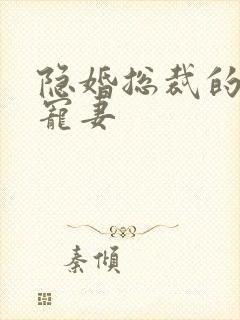 隐婚总裁的
宠妻
秦倾